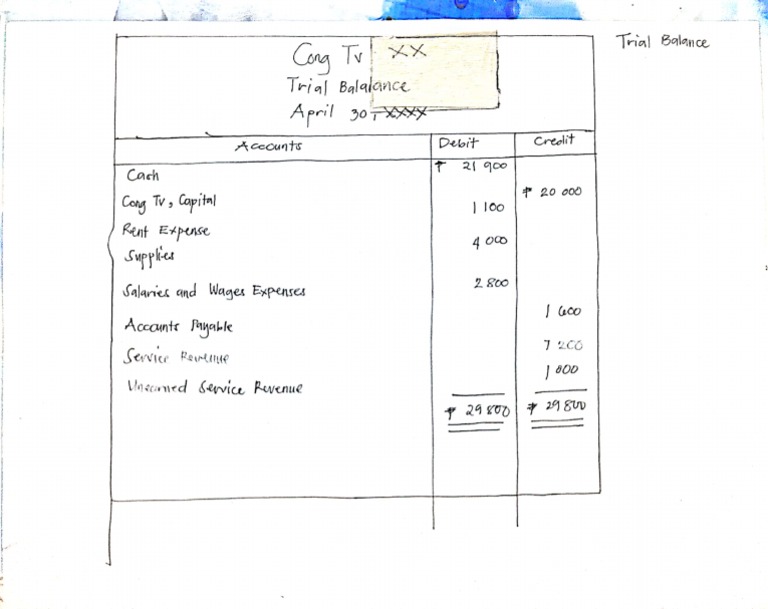 Trial Balance
Cong Tv XX
Trial Balalance
April 30, XXXX
Accounts Debit Credit
Cash ₱ 21 900
Cong Tv, Capital ₱ 20 000
Rent Expense 1 100
Supplies 4 000
Salaries and Wages Expenses 2 800
Accounts Payable 1 600
Service Revenue 7 200
Unearned Service Revenue 1 000
₱ 29 800 ₱ 29 800